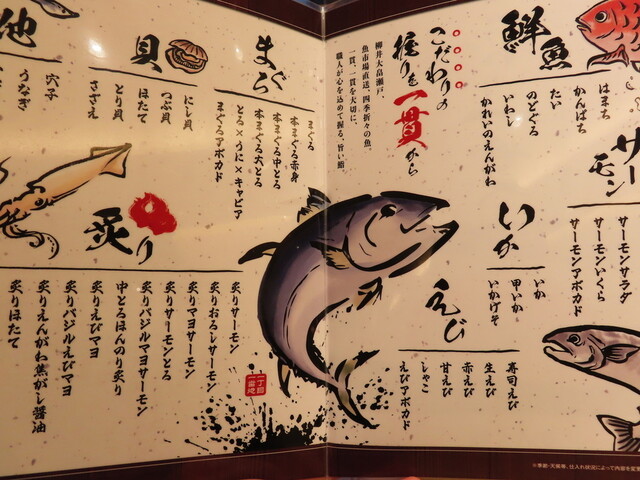 鮮魚
はまち
かんぱち
たい
のどぐろ
いわし
かれいのえんがわ
サーモン
サーモン
サーモンいくら
サーモンサラダ
サーモンアボカド
こだわりの
握りを一貫から
柳井大畠瀬戸、
魚市場直送、四季折々の魚。
一貫、一貫を大切に、
職人が心を込めて握る、旨い鮨。
いか
いか
甲いか
いかげそ
えび
寿司えび
生えび
赤えび
甘えび
しゃこ
えびアボカド
まぐろ
まぐろ
本まぐろ赤身
本まぐろ中とろ
本まぐろ大とろ
とろ×うに×キャビア
まぐろアボカド
貝
にし貝
つぶ貝
ほたて
とり貝
さざえ
他
穴子
うなぎ
炙り
炙りサーモン
炙りおろしサーモン
炙りマヨサーモン
炙りサーモンとろ
炙りバジルマヨサーモン
中とろほんのり炙り
炙りえびマヨ
炙りバジルえびマヨ
炙りえんがわ焦がし醤油
炙りほたて
一丁目
一番地
※季節・天候等、仕入れ状況によって内容を変更